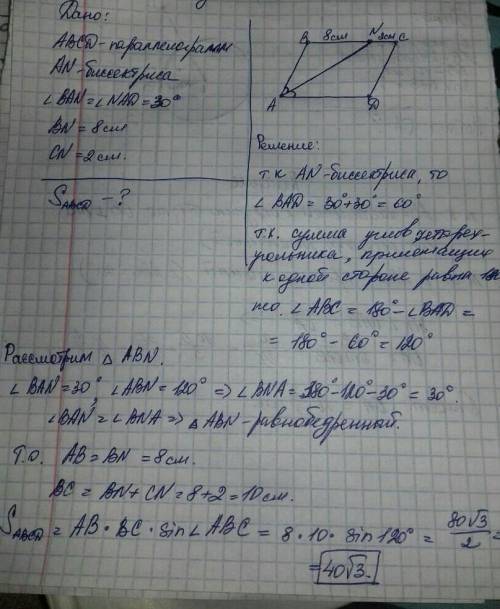 Дано:
ABCD - параллелограмм
AN - биссектриса
∠BAN = ∠NAD = 30°
BN = 8см
CN = 2см.
S ABCD - ?
B 8см N 2см C
A D
Решение:
т.к AN - биссектриса, то
∠BAD = 30° + 30° = 60°
т.к. сумма углов четырех-
угольника, прилежащих
к одной стороне равна 180
то. ∠ABC = 180° - ∠BAD =
= 180° - 60° = 120°
Рассмотрим △ ABN.
∠BAN = 30°, ∠ABN = 120° => ∠BNA = 180° - 120° - 30° = 30°.
∠BAN = ∠BNA => △ABN - равнобедренный.
Т.о. AB = BN = 8см.
BC = BN + CN = 8 + 2 = 10см.
S ABCD = AB · BC · sin∠ABC = 8 · 10 · sin 120° = 80√3/2 =
= 40√3.